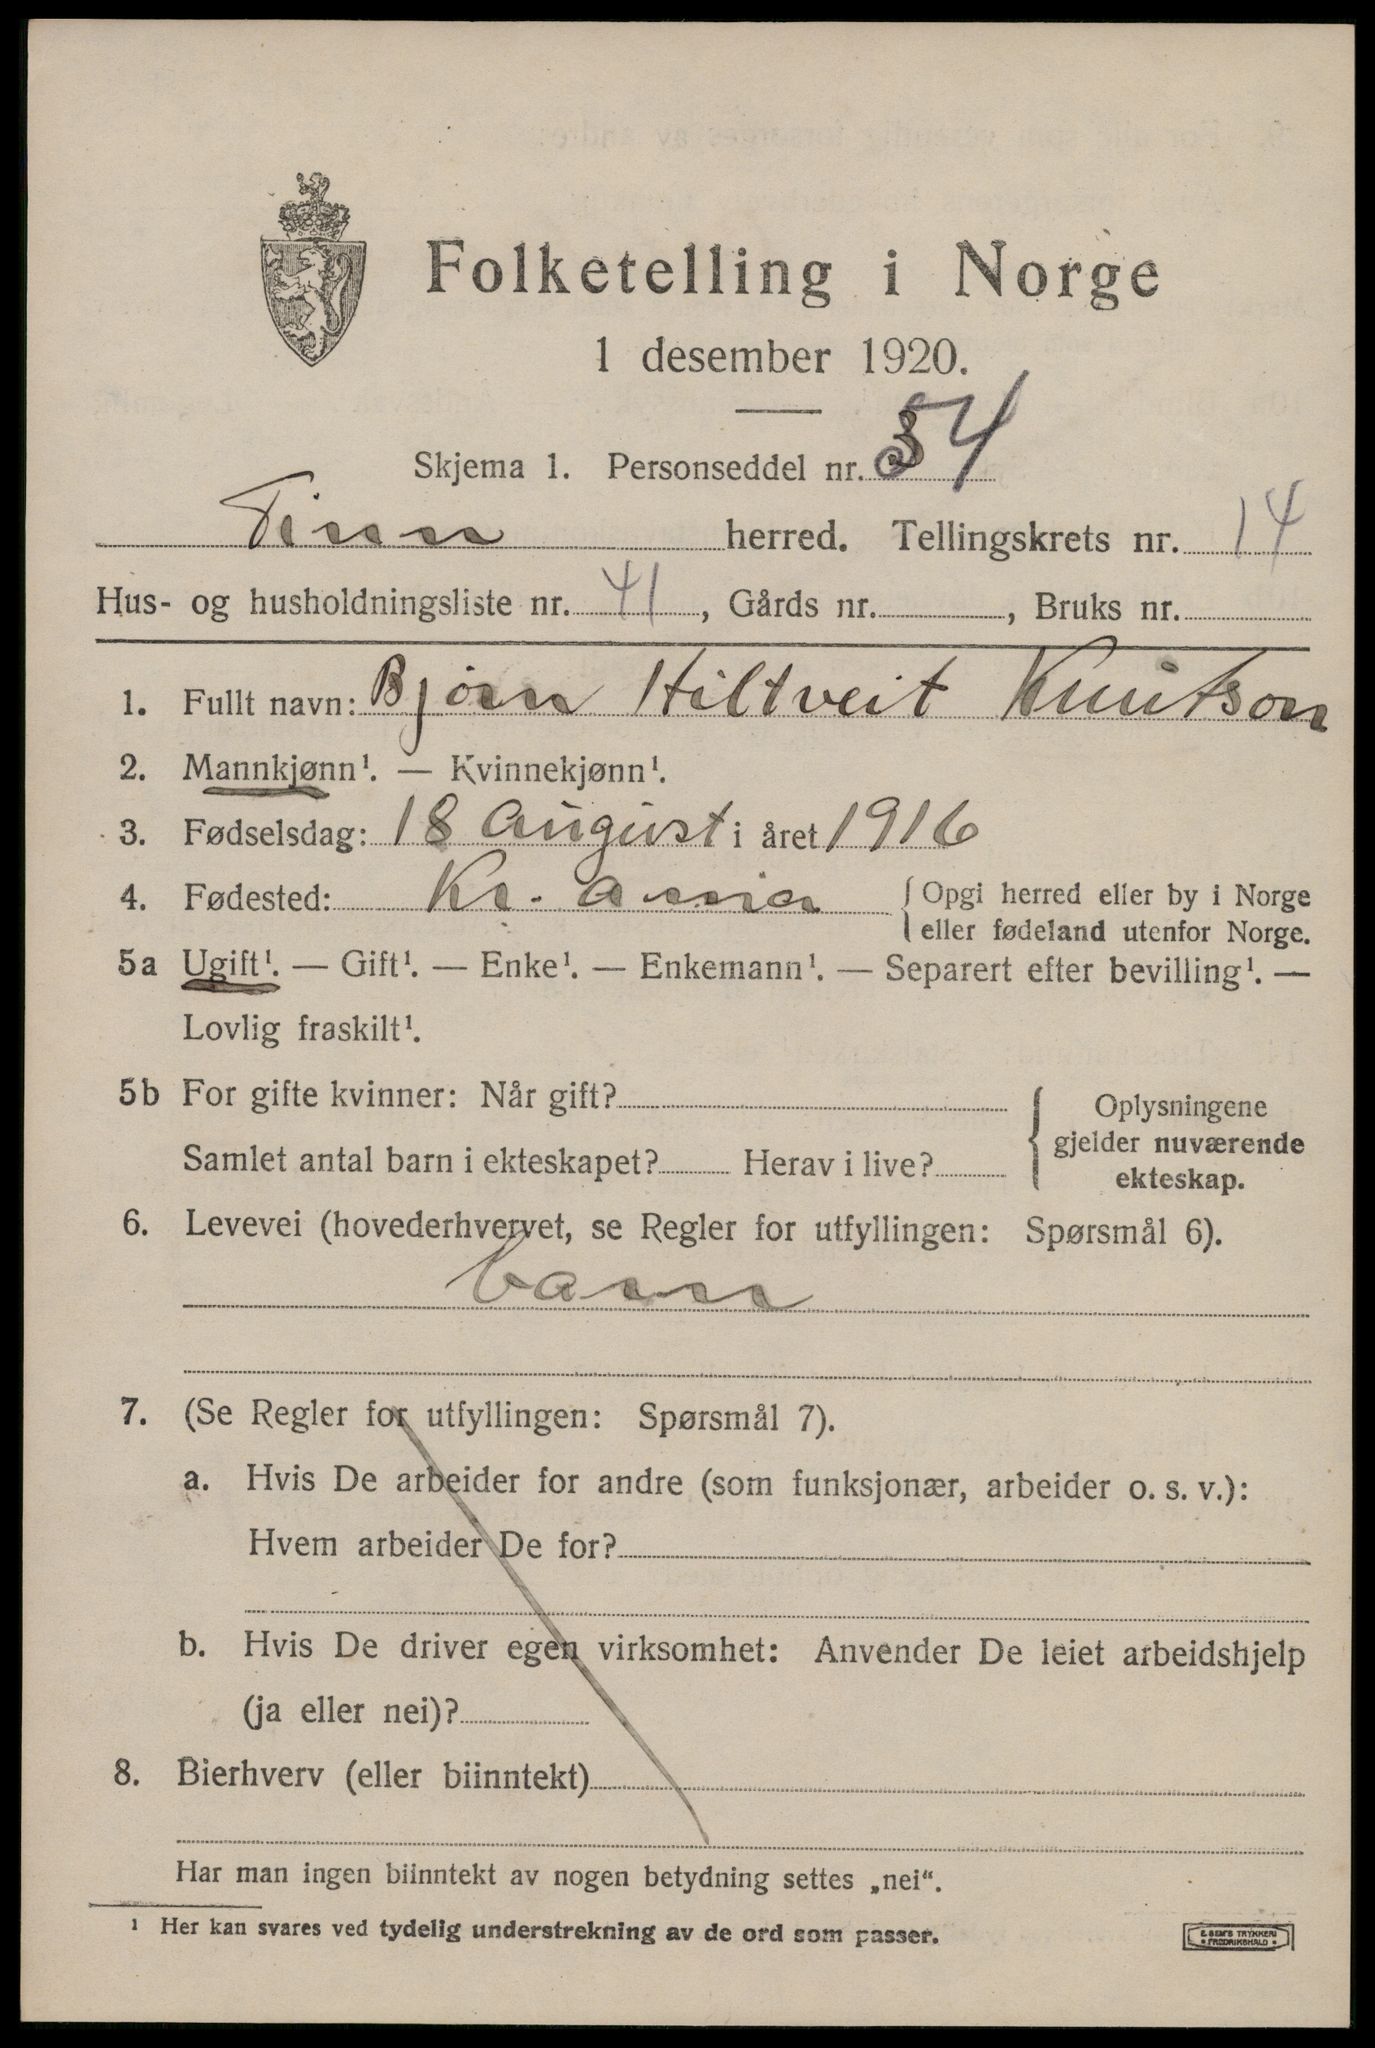 Folketelling i Norge
1 desember 1920.
Skjema 1. Personseddel nr. 54
Tinn herred. Tellingskrets nr. 14
Hus- og husholdningsliste nr. 41, Gårds nr. , Bruks nr.
1. Fullt navn: Bjørn Hiltveit Knutson
2. Mannkjønn¹. — Kvinnekjønn¹.
3. Fødselsdag: 18 august i året 1916
4. Fødested: Kr. ania { Opgi herred eller by i Norge
eller fødeland utenfor Norge.
5a Ugift¹. — Gift¹. — Enke¹. — Enkemann¹. — Separert efter bevilling¹. —
Lovlig fraskilt¹.
5b For gifte kvinner: Når gift?
Samlet antal barn i ekteskapet? Herav i live?
{ Oplysningene
gjelder nuværende
ekteskap.
6. Levevei (hovederhvervet, se Regler for utfyllingen: Spørsmål 6).
barn
7. (Se Regler for utfyllingen: Spørsmål 7).
a. Hvis De arbeider for andre (som funksjonær, arbeider o. s. v.):
Hvem arbeider De for?
b. Hvis De driver egen virksomhet: Anvender De leiet arbeidshjelp
(ja eller nei)?
8. Bierhverv (eller biinntekt)
Har man ingen biinntekt av nogen betydning settes „nei“.
¹ Her kan svares ved tydelig understrekning av de ord som passer.
E. SEM'S TRYKKERI
FREDRIKSHALD